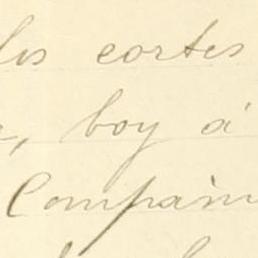 les cortes
, boy á
Compañ